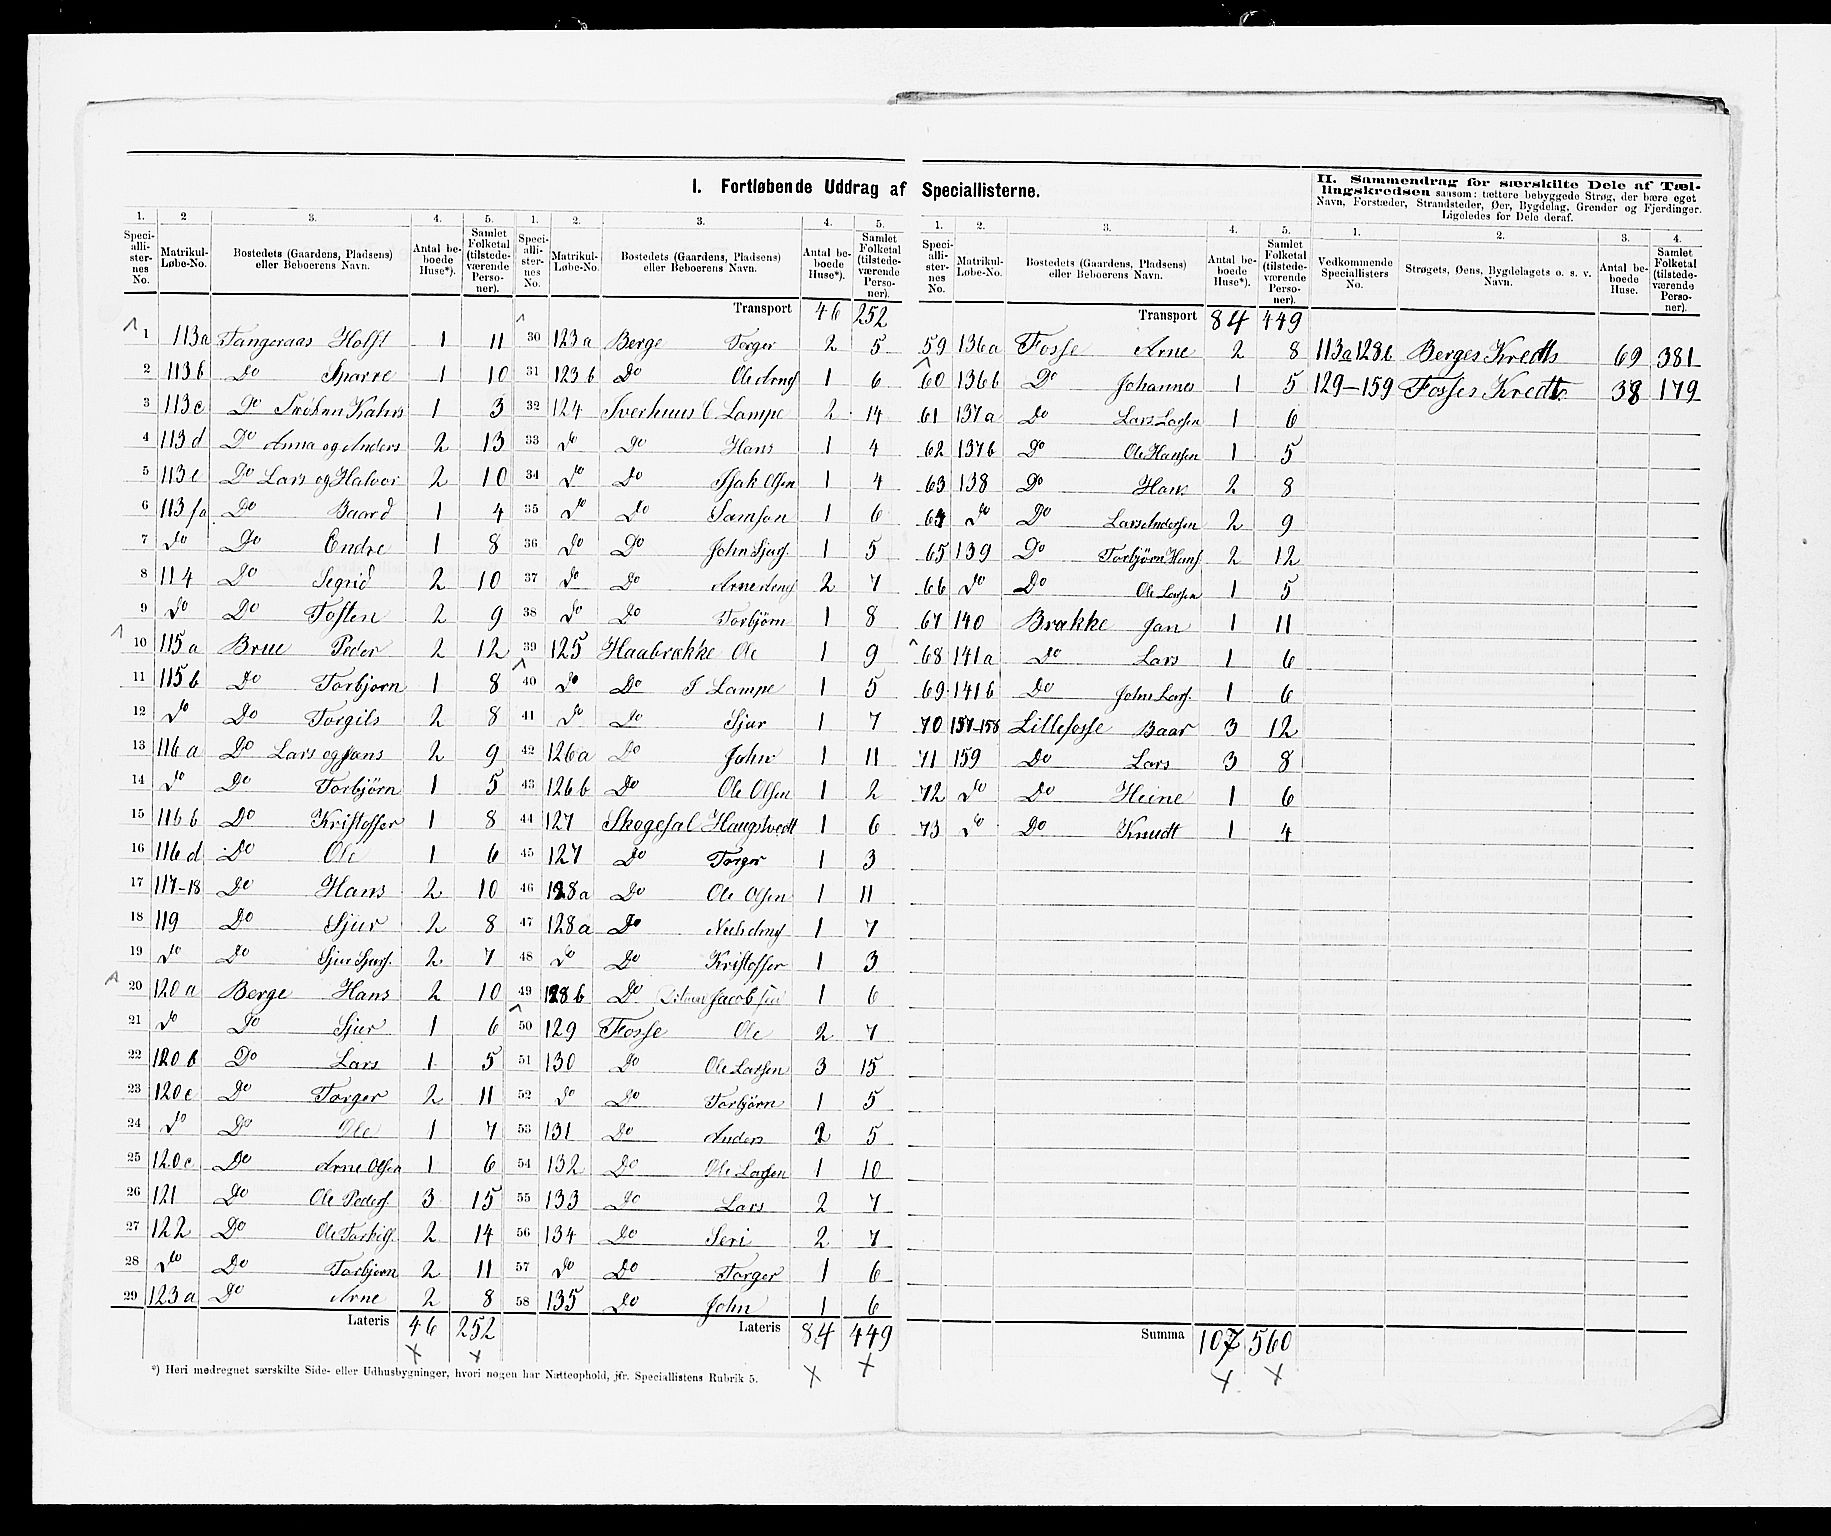 I. Fortløbende Uddrag af Speciallisterne.
II. Sammendrag for særskilte Dele af Tællingskredsen saasom: tættere bebyggede Strøg, der bære eget Navn, Forstæder, Strandsteder, Øer, Bygdelag, Grender og Fjerdinger. Ligeledes for Dele deraf.
1. 2 3. 4. 5.
Speciallisternes No. Matrikul-Løbe-No. Bostedets (Gaardens, Pladsens) eller Beboerens Navn. Antal beboede Huse*). Samlet Folketal (tilstedeværende Personer).
1 113a Tangeraas Holst 1 11
2 113b Do Sparre 1 10
3 113c Do Frøken Kahrs 1 3
4 113d Do Anna og Anders 2 13
5 113e Do Lars og Halvor 2 10
6 113fa Do Baard 1 4
7 Do Do Endre 1 8
8 114 Do Segrid 2 10
9 Do Do Tosten 2 9
10 115a Brue Peder 2 12
11 115b Do Torbjørn 1 8
12 Do Do Torgils 2 8
13 116a Do Lars og Jøns 2 9
14 Do Do Torbjörn 1 5
15 116b Do Kristoffer 1 8
16 116d Do Ole 1 6
17 117-18 Do Hans 2 10
18 119 Do Sjur 2 8
19 Do Do Sjur Sjurs. 2 7
20 120a Berge Hans 2 10
21 Do Do Sjur 1 6
22 120b Do Lars 1 5
23 120c Do Torger 2 11
24 Do Do Ole 1 7
25 120c Do Arne Olsen 1 6
26 121 Do Ole Peders 3 15
27 122 Do Ole 2 14
28 Do Do Torbjørn 2 11
29 123a Do Arne 2 8
Lateris 46 252
1. 2. 3. 4. 5.
Speciallisternes No. Matrikul-Løbe-No. Bostedets (Gaardens, Pladsens) eller Beboerens Navn. Antal beboede Huse*). Samlet Folketal (tilstedeværende Personer).
Transport 46 252
30 123a Berge Torger 2 5
31 123b Do Ole Arns 1 6
32 124 Sverhuus C. Lampe 2 14
33 Do Do Hans 1 4
34 Do Do Isak Olsen 1 4
35 Do Do Samson 1 6
36 Do Do John Sjurs. 1 5
37 Do Do Arne Arns 2 7
38 Do Do Torbjörn 1 8
39 125 Haabrække Ole 1 9
40 Do Do J Lampe 1 5
41 Do Do Sjur 1 7
42 126a Do John 1 11
43 126b Do Ole Olsen 1 2
44 127 Skogesal Haugstvedt 1 6
45 127 Do Torger 1 3
46 128a Do Ole Olsen 1 11
47 128a Do 1 7
48 Do Do Kristoffer 1 3
49 128b Do Jacobsen 1 6
50 129 Fosse Ole 2 7
51 130 Do Ole Larsen 3 15
52 Do Do Torbjörn 1 5
53 131 Do Anders 2 5
54 132 Do Ole Larsen 1 10
55 133 Do Lars 2 7
56 134 Do Seri 2 7
57 Do Do Torger 1 6
58 135 Do John 1 6
Lateris 84 449
*) Heri medregnet særskilte Side- eller Udhusbygninger, hvori nogen har Natteophold, jfr. Speciallistens Rubrik 5.
1. 2. 3. 4. 5.
Speciallisternes No. Matrikul-Løbe-No. Bostedets (Gaardens, Pladsens) eller Beboerens Navn. Antal beboede Huse*). Samlet Folketal (tilstedeværende Personer).
Transport 84 449
59 136a Fosse Arne 2 8
60 136b Do Johannes 1 5
61 137a Do Lars Larsen 1 6
62 137b Do Ole Hansen 1 5
63 138 Do Hans 2 8
64 Do Do Lars Andersen 2 9
65 139 Do Torbjörn Hans 2 12
66 Do Do Ole Larsen 1 5
67 140 Brække Jan 1 11
68 141a Do Lars 1 6
69 141b Do John Lars. 1 6
70 157-158 Lillefosse Baar 3 12
71 159 Do Lars 3 8
72 Do Do Heine 1 6
73 Do Do Knudt 1 4
Summa 107 560
1. 2. 3. 4.
Vedkommende Speciallisters No. Strøgets, Øens, Bygdelagets o. s. v. Navn. Antal beboede Huse. Samlet Folketal (tilstedeværende Personer).
113a128b Berges Kreds 69 381
129-159 Fosses Kreds 38 179